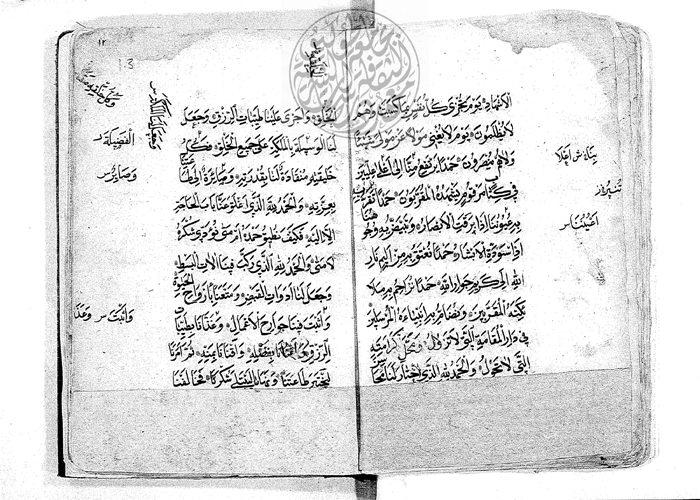 الاشهاد في يوم تجزى كل نفس بما كسبت وهم
لا يظلمون يوم لا يغني مولا عن مولا شيئا
ولا هم ينصرون حمدا يرتفع منا الى اعلا عليين
في كتاب مرقوم يشهده المقربون حمدا تقر
به عيوننا اذا برقت الابصار وتبيض به وجوهنا
اذا اسودت الابشار حمدا نعتق به من اليم نار
الله الى كريم جوار الله حمدا نزاحم به ملا
ئكته المقربين ونضام به انبياءه المرسلين
في دار المقامة التي لا تزول ومحل كرامته
التي لا تحول والحمد لله الذي اختار لنا محا
اعيننا س
١٢
13
الخلق واجرى علينا طيبات الرزق وجعل
لنا الوسيلة بالملكة على جميع الخلق فكل
خليقته منقادة لنا بقدرته وصائرة الى طاعتنا
بعزته والحمد لله الذي اغلق عنا باب الحاجة
الا اليه فكيف نطيق حمده ام متى نؤدي شكره
لا متى والحمد لله الذي ركب فينا الات البسط
وجعل لنا ادوات القبض ومتعنا بارواح الحيوة
واثبت فينا جوارح الاعمال وغذانا بطيبات
الرزق واغنانا بفضله واقنانا بمنه ثم امرنا
ليختبر طاعتنا ونهانا ليبتلي شكرنا فخالفنا
الفضيلة ر
وصائر س
واثبت س وغذا